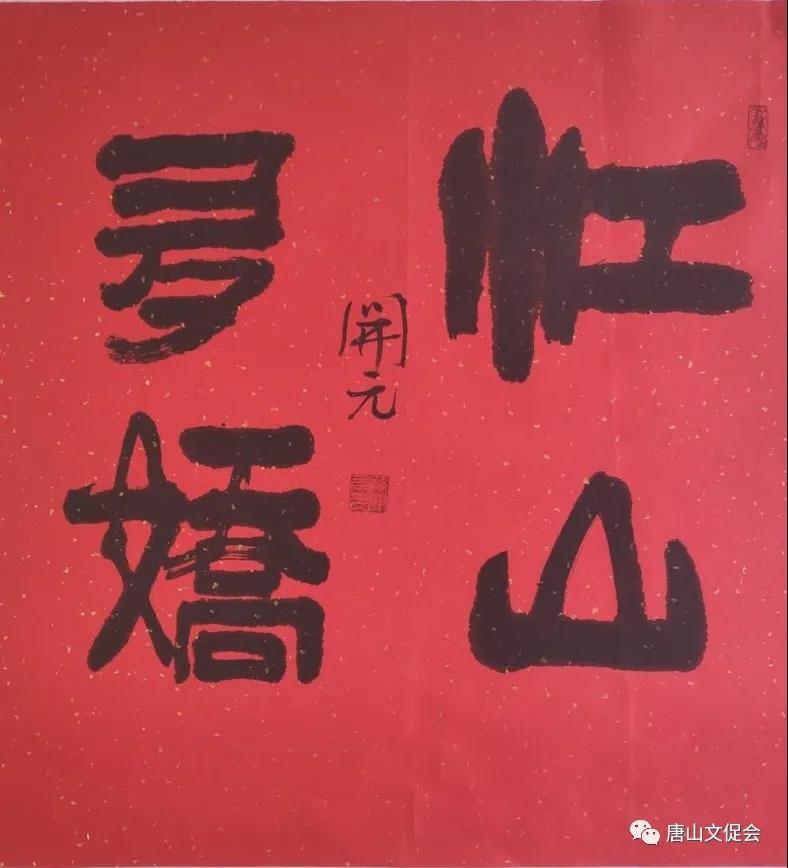 江山
多嬌
開元
唐山文促会